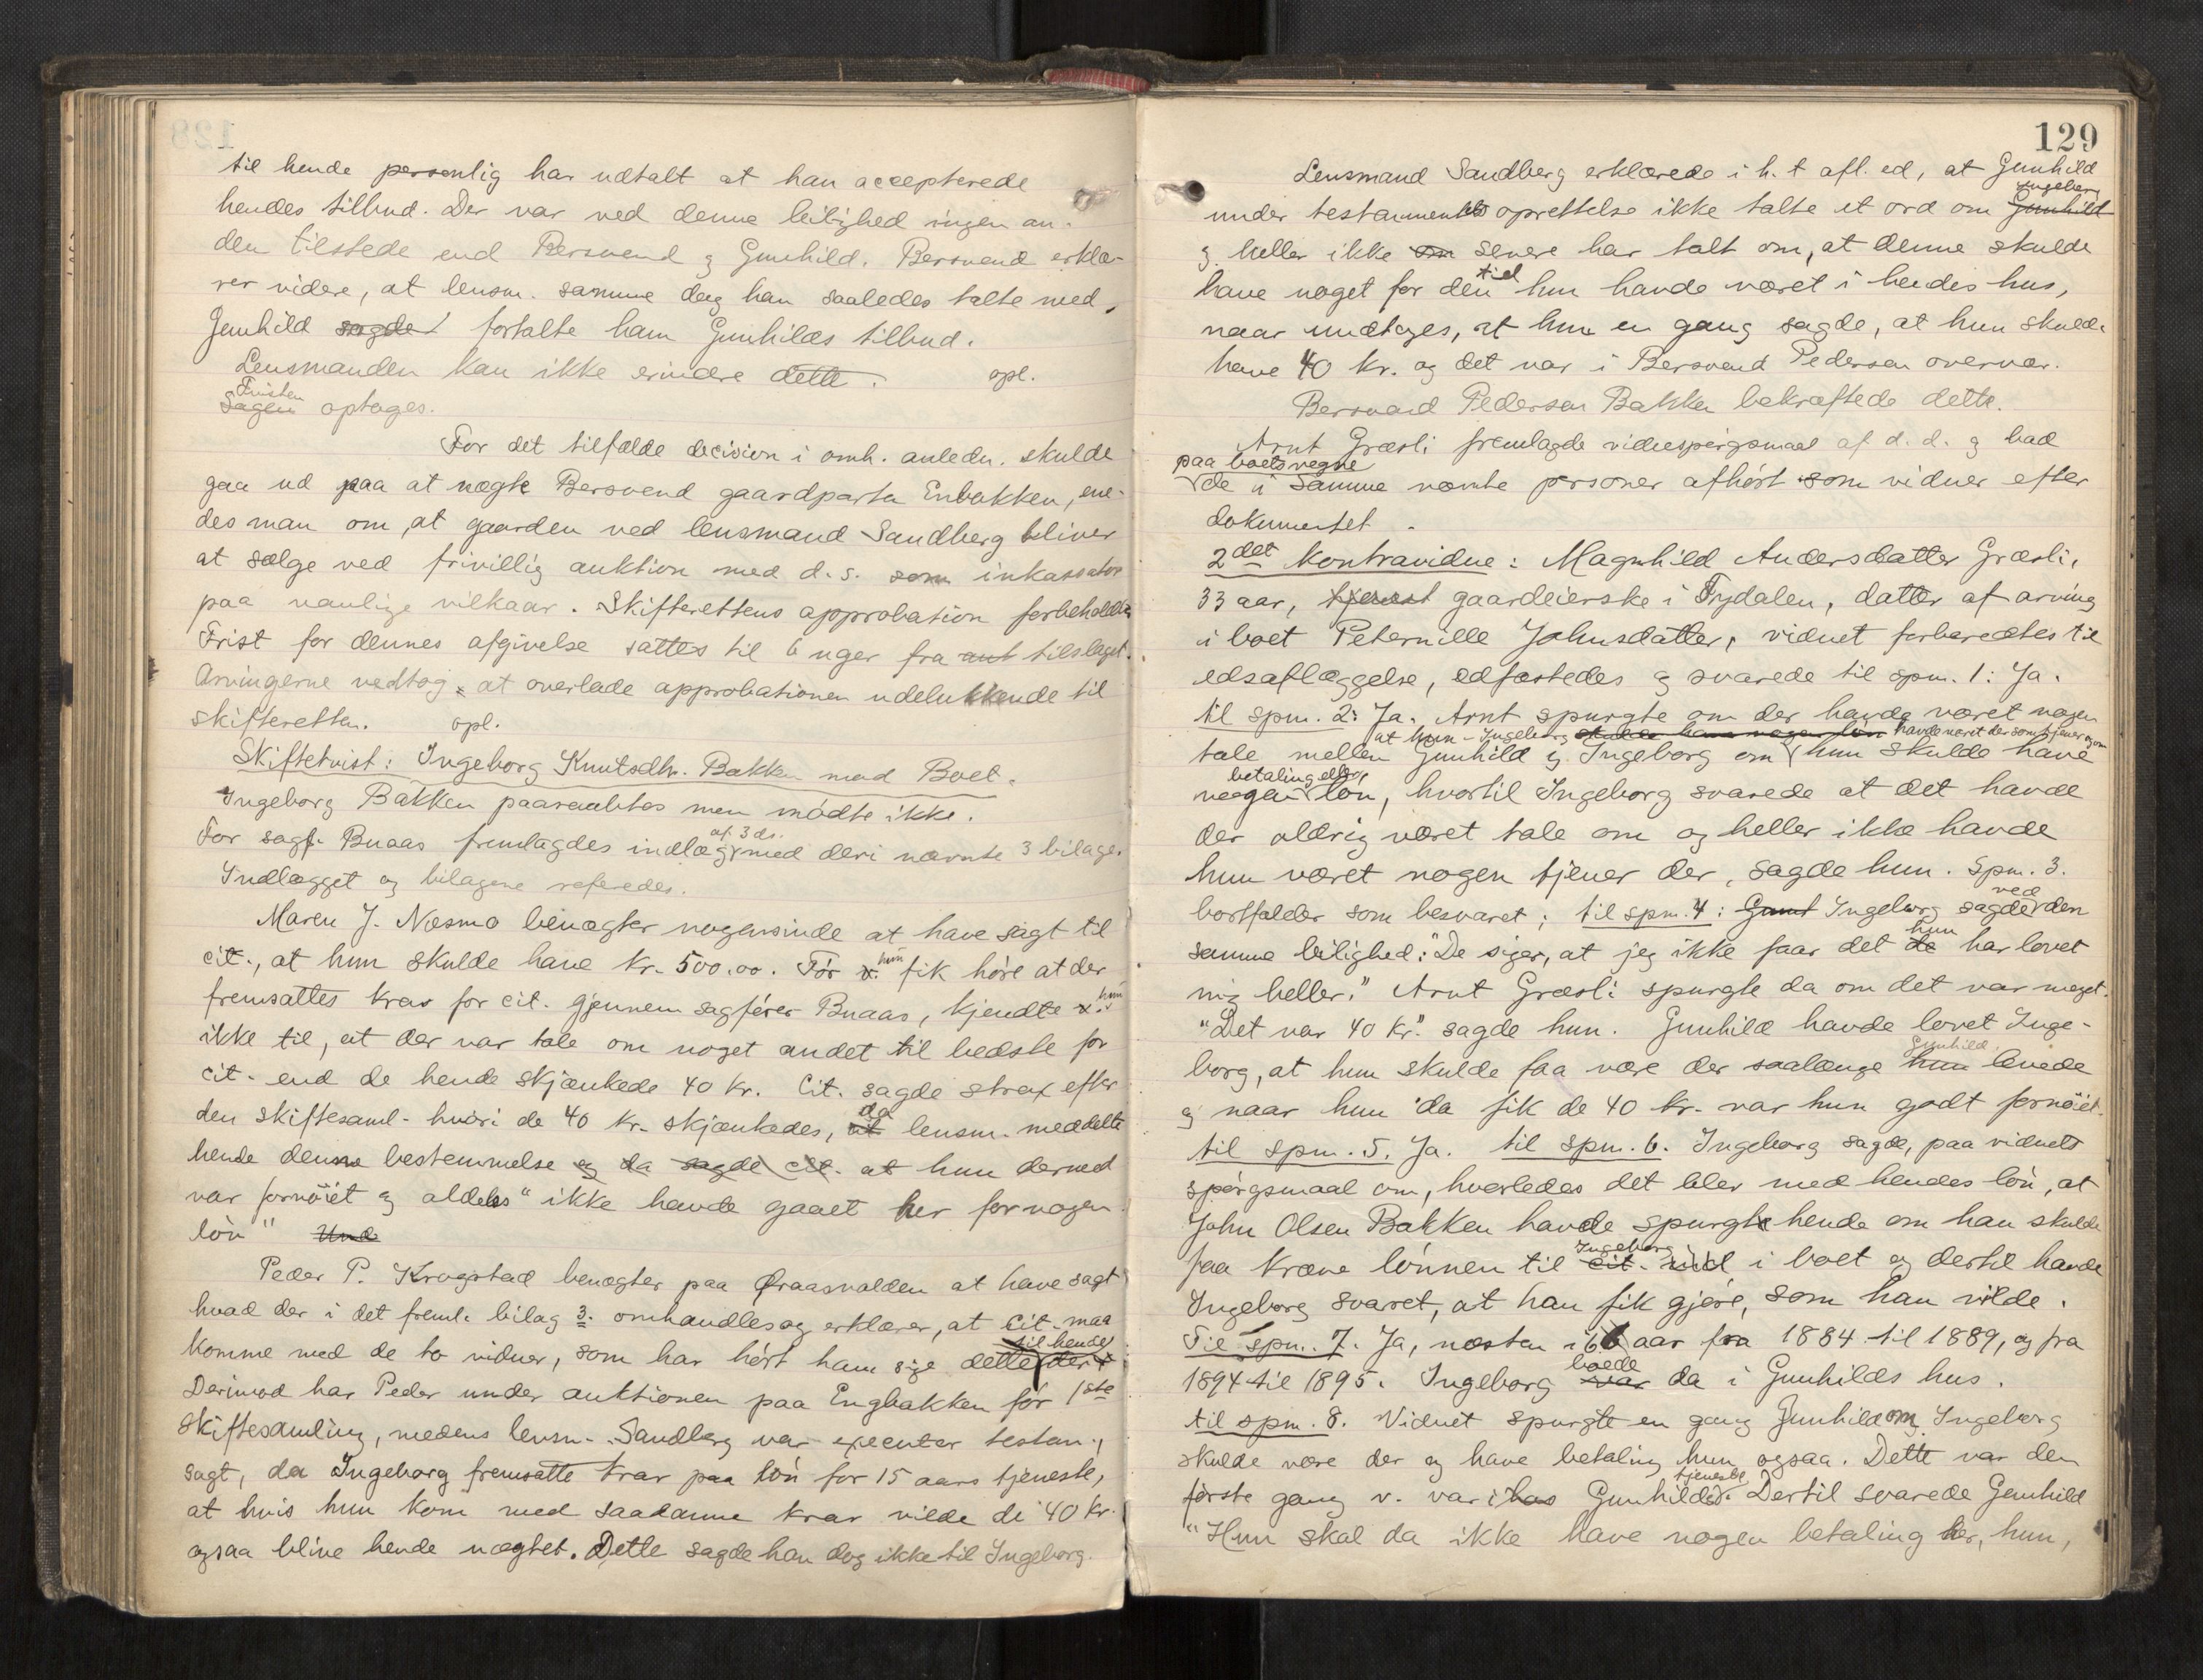 til hende personlig har udtalt at han accepterede
hendes tilbud. Der var ved denne leilighed ingen an-
den tilstede end Bersvend og Gunhild. Bersvend erklæ-
rer videre, at lensm. samme dag han saaledes talte med
Gunhild sagde fortalte ham Gunhilds tilbud.
Lensmanden kan ikke erindre dette. opl.
Tvisten
Sagen optages.
For det tilfælde decision i omh. anledn. skulde
gaa ud paa at nægte Bersvend gaardparten Enbakken, ene-
des man om, at gaarden ved lensmand Sandberg bliver
at sælge ved frivillig auktion med d.s. som inkassator
paa vanlige vilkaar. Skifterettens approbation forbeholdtes
Frist for dennes afgivelse sattes til 6 uger fra auk tilslaget.
Arvingerne vedtog at overlade approbationen udelukkende til
skifteretten. opl.
Skiftetvist: Ingeborg Knutsdtr. Bakken mod Boet.
Ingeborg Bakken paaraabtes men mødte ikke.
For sagf. Buaas fremlagdes indlæg af 3 ds. med deri nævnte 3 bilager
Indlægget og bilagene referedes.
Maren J. Næsmo benægter nogensinde at have sagt til
cit., at hun skulde have kr. 500.00. Før v. hun fik høre at der
fremsattes krav for cit. gjennem sagfører Buaas, kjendte v. hun
ikke til, at der var tale om noget andet til bedste for
cit. end de hende skjænkede 40 kr. Cit. sagde strax efter
den skiftesaml. hvori de 40 kr. skjænkedes, at da lensm. meddelte
hende denne bestemmelse og da sagde cit. at hun dermed
var fornøiet og aldeles "ikke havde gaaet her for nogen
løn" Und
Peder P. Krogstad benægter paa Øraasvolden at have sagt
hvad der i det freml. bilag 3. omhandles og erklærer, at cit. maa
komme med de to vidner, som har hørt ham sige dette til hende der
Derimod har Peder under auktionen paa Engbakken før 1ste
skiftesamling, medens lensm. Sandberg var executor testam.,
sagt, da Ingeborg fremsatte krav paa løn for 15 aars tjeneste,
at hvis hun kom med saadanne krav vilde de 40 kr.
ogsaa blive hende nægtet. Dette sagde han dog ikke til Ingeborg.
129
Lensmand Sandberg erklærede i h.t afl. ed, at Gunhild
under testamentets oprettelse ikke talte et ord om Gunhild Ingeborg
og heller ikke om senere har talt om, at denne skulde
have noget for den tid hun havde været i hendes hus,
naar undtages, at hun en gang sagde, at hun skulde
have 40 kr. og det var i Bersvend Pedersen overvær.
Bersvend Pedersen Bakken bekræftede dette.
Arnt Græsli fremlagde vidnespørgsmaal af d.d. og bad
paa boets vegne
de i samme nævnte personer afhørt som vidner efter
dokumentet.
2det Kontravidne: Magnhild Andersdatter Græsli,
33 aar, tjenest gaardeierske i Tydalen, datter af arving
i boet Peternille Johnsdatter, vidnet forberedtes til
edsaflæggelse, edfæstedes og svarede til spm. 1: Ja.
til spm. 2: Ja. Arnt spurgte om der havde været nogen
at hun - Ingeborg skulde have nogen løn havde været der som tjener og om
tale mellem Gunhild og Ingeborg om hun skulde have
betaling eller
nogen løn, hvortil Ingeborg svarede at det havde
der aldrig været tale om og heller ikke havde
hun været nogen tjener der, sagde hun. Spm. 3.
bortfalder som besvaret; til spm. 4: Gunt Ingeborg sagde ved den
samme leilighed: "De siger, at jeg ikke faar det de hun har lovet
mig heller." Arnt Græsli spurgte da om det var meget.
"Det var 40 Kr." sagde hun. Gunhild havde lovet Inge-
borg, at hun skulde faa være der saalænge hun Gunhild levede
og naar hun da fik de 40 kr. var hun godt fornøiet.
til spm. 5. Ja. til spm. 6. Ingeborg sagde, paa vidnets
spørgsmaal om, hvorledes det blev med hendes løn, at
John Olsen Bakken havde spurgt hende om han skulde
faa kræve lønnen til cit. Ingeborg ind i boet og dertil havde
Ingeborg svaret, at han fik gjøre, som han vilde.
Til spm. 7. Ja, næsten i 6 aar fra 1884 til 1889, og fra
1894 til 1895. Ingeborg var boede da i Gunhilds hus.
til spm. 8. Vidnet spurgte en gang Gunhild om Ingeborg
skulde være der og have betaling hun ogsaa. Dette var den
første gang v. var i hos Gunhilds tjeneste. Dertil svarede Gunhild
"Hun skal da ikke have nogen betaling her, hun,